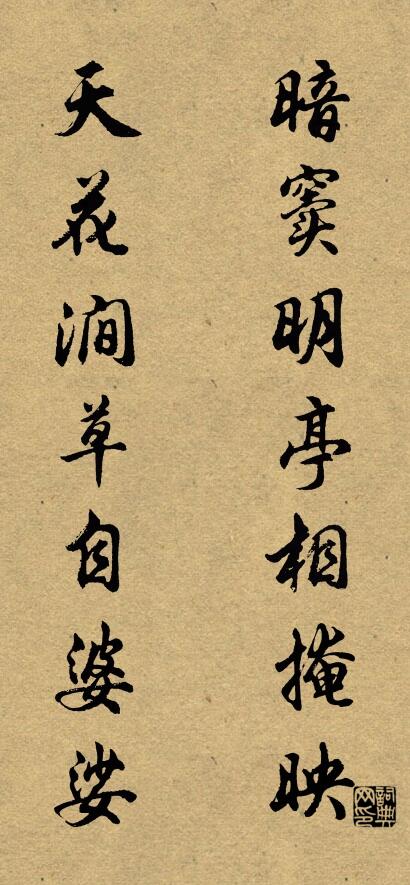 暗窦明亭相掩映
天花涧草自婆娑
词典网印